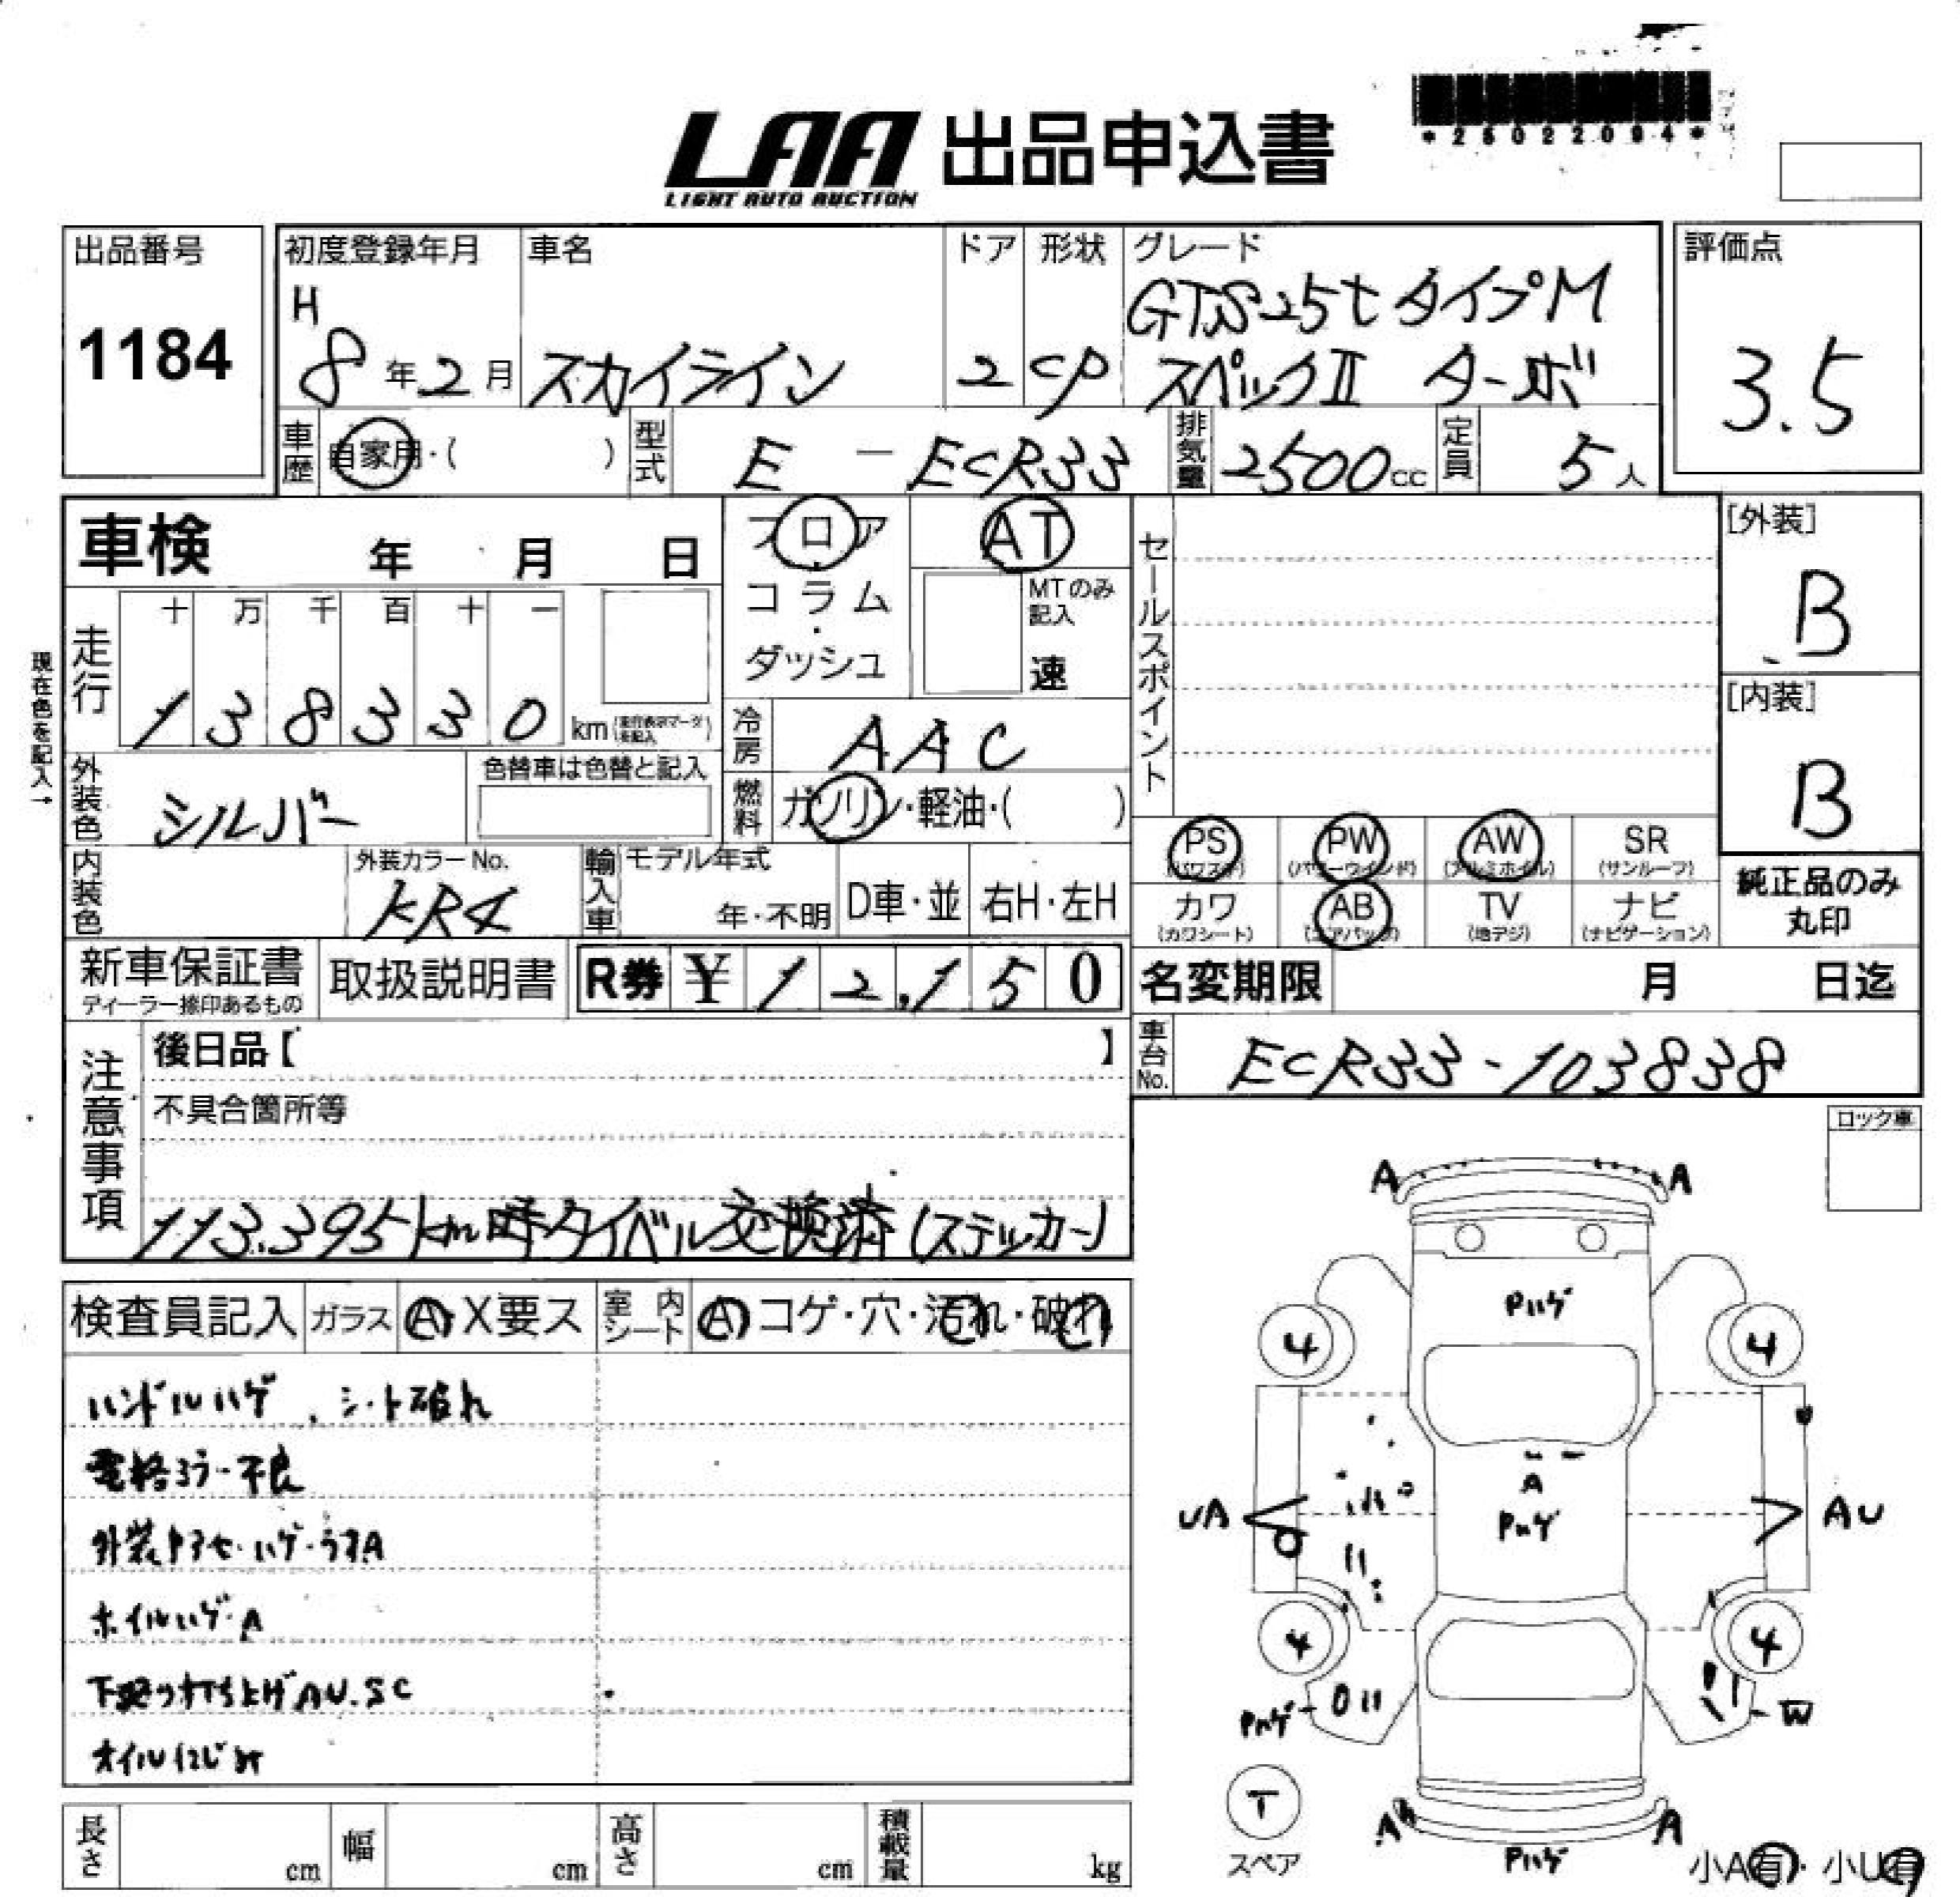 LAA 出品申込書
LIGHT AUTO AUCTION
*25022094*
出品番号
1184
初度登録年月
H
8年2月
車名
スカイライン
ドア
2
形状
CP
グレード
GTS25t タイプM
スペックⅡ ターボ
評価点
3.5
車歴
自家用・( )
型式
E - ECR33
排気量
2500cc
定員
5人
車検 年 月 日
フロア
・
コラム
・
ダッシュ
AT
MTのみ
記入
速
セールスポイント
[外装]
B
[内装]
B
現在色を記入→
走行
十 万 千 百 十 一
1 3 8 3 3 0 km
冷房
AAC
外装色
シルバー
色替車は色替と記入
燃料
ガソリン・軽油・( )
PS PW AW SR
(パワステ) (パワーウインド) (アルミホイル) (サンルーフ)
カワ AB TV ナビ
(カワシート) (エアバッグ) (地デジ) (ナビゲーション)
純正品のみ
丸印
内装色
外装カラーNo.
KR4
輸入車
モデル年式
年・不明
D車・並
右H・左H
新車保証書
ディーラー捺印あるもの
取扱説明書
R券 ¥ 12,150
名変期限 月 日迄
注意事項
後日品【 】
車台No.
ECR33-103838
不具合箇所等
113.395km時タイベル交換済(ステッカー)
ロック車
検査員記入 ガラス A・X要ス 室内シート A・コゲ・穴・汚れ・破れ
ハンドルハゲ、シート破れ
電格ミラー不良
外装ヤケ・ハゲ・うすA
ホイルハゲ・A
下廻り打ち上げAU.SC
オイルにじみ
A A
Pハゲ
4 4
A
Pハゲ
UA AU
4 4
Pハゲ W
T
スペア
A A
Pハゲ
小A有・小U有
長さ cm 幅 cm 高さ cm 積載量 kg